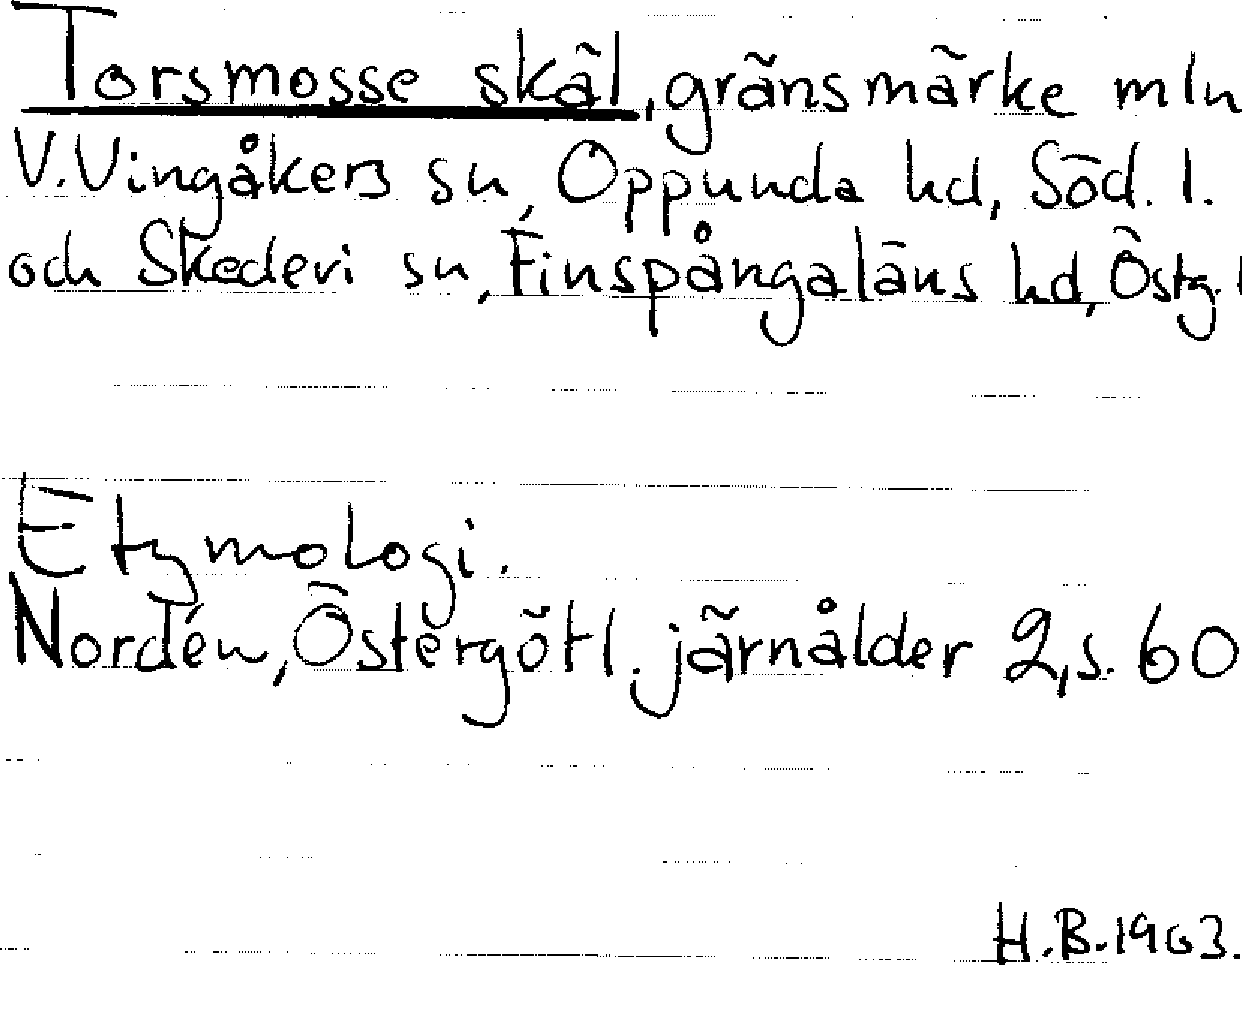 Torsmosse skäl, gränsmärke mln
V.Vingåkers sn, Oppunda hd, Söd. l.
och Skedevi sn, Finspångaläns hd, Östg. l
Etymologi.
Nordén, Östergötl. järnålder 2, s. 60
H.B. 1963.